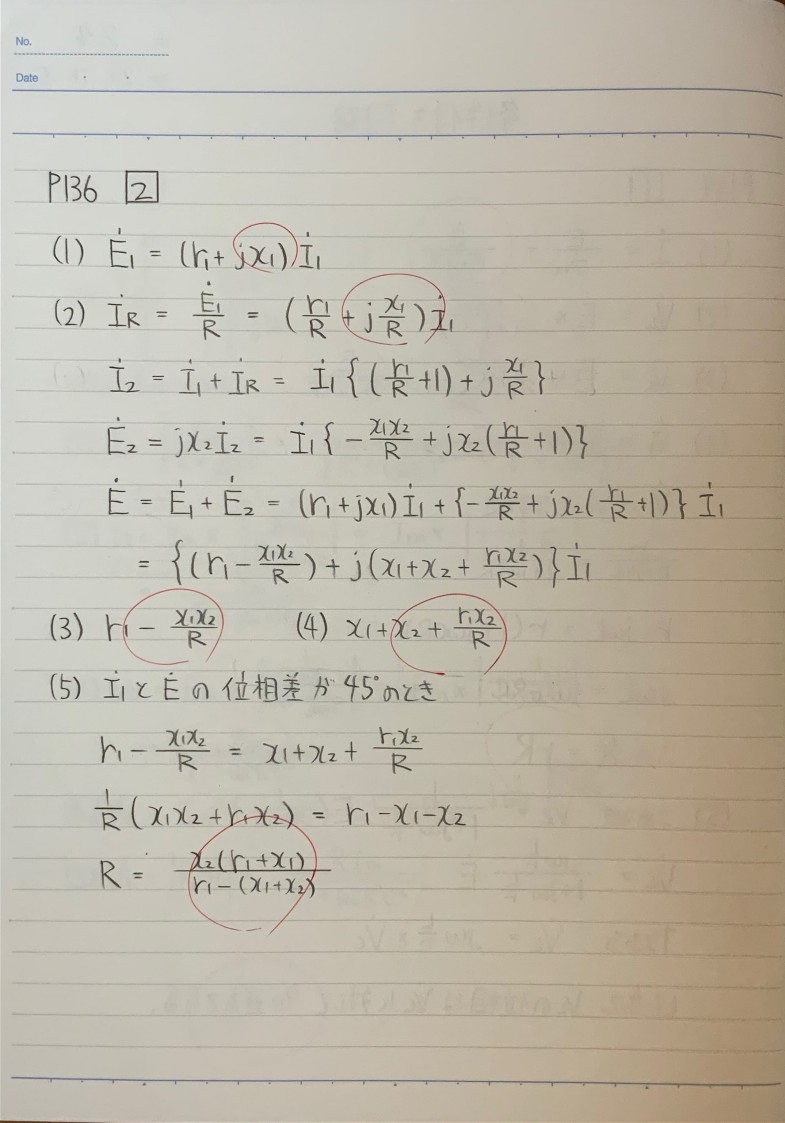 No.
Date
P136 [2]
(1) Ė₁ = (r₁ + jx₁) İ₁
(2) İR = Ė₁/R = (r₁/R + j x₁/R) İ₁
İ₂ = İ₁ + İR = İ₁ { (r₁/R + 1) + j x₁/R }
Ė₂ = jx₂İ₂ = İ₁ { - x₁x₂/R + jx₂ (r₁/R + 1) }
Ė = Ė₁ + Ė₂ = (r₁ + jx₁) İ₁ + { - x₁x₂/R + jx₂ (r₁/R + 1) } İ₁
= { (r₁ - x₁x₂/R) + j (x₁ + x₂ + r₁x₂/R) } İ₁
(3) r₁ - x₁x₂/R (4) x₁ + x₂ + r₁x₂/R
(5) İ₁とĖの位相差が45°のとき
r₁ - x₁x₂/R = x₁ + x₂ + r₁x₂/R
1/R (x₁x₂ + r₁x₂) = r₁ - x₁ - x₂
R = x₂(r₁ + x₁) / r₁ - (x₁ + x₂)